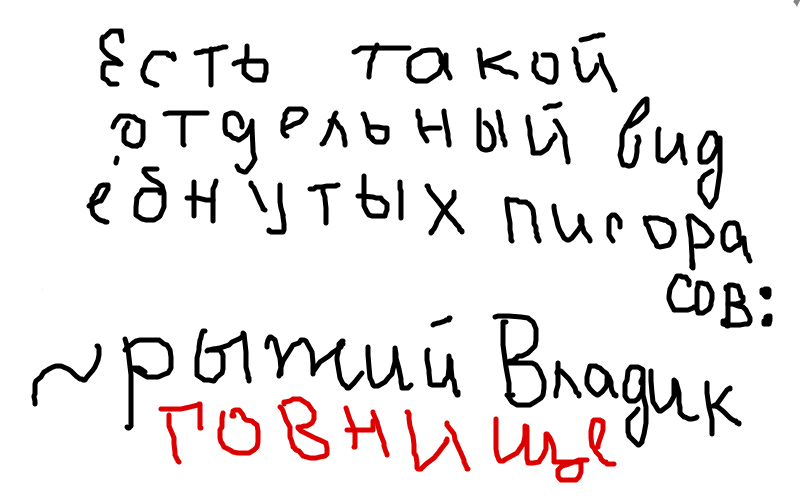 Есть такой
отдельный вид
ёбнутых пигора
сов:
~рыжий Владик
говнище